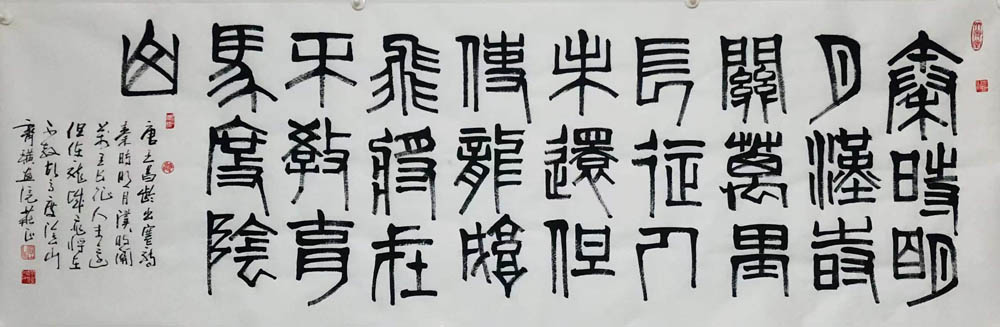 秦時明
月漢時
關萬里
長征人
未還但
使龍城
飛將在
不教胡
馬度陰
山
唐王昌齡出塞詩
秦時明月漢時關
萬里長征人未還
但使龍城飛將在
不教胡馬度陰山